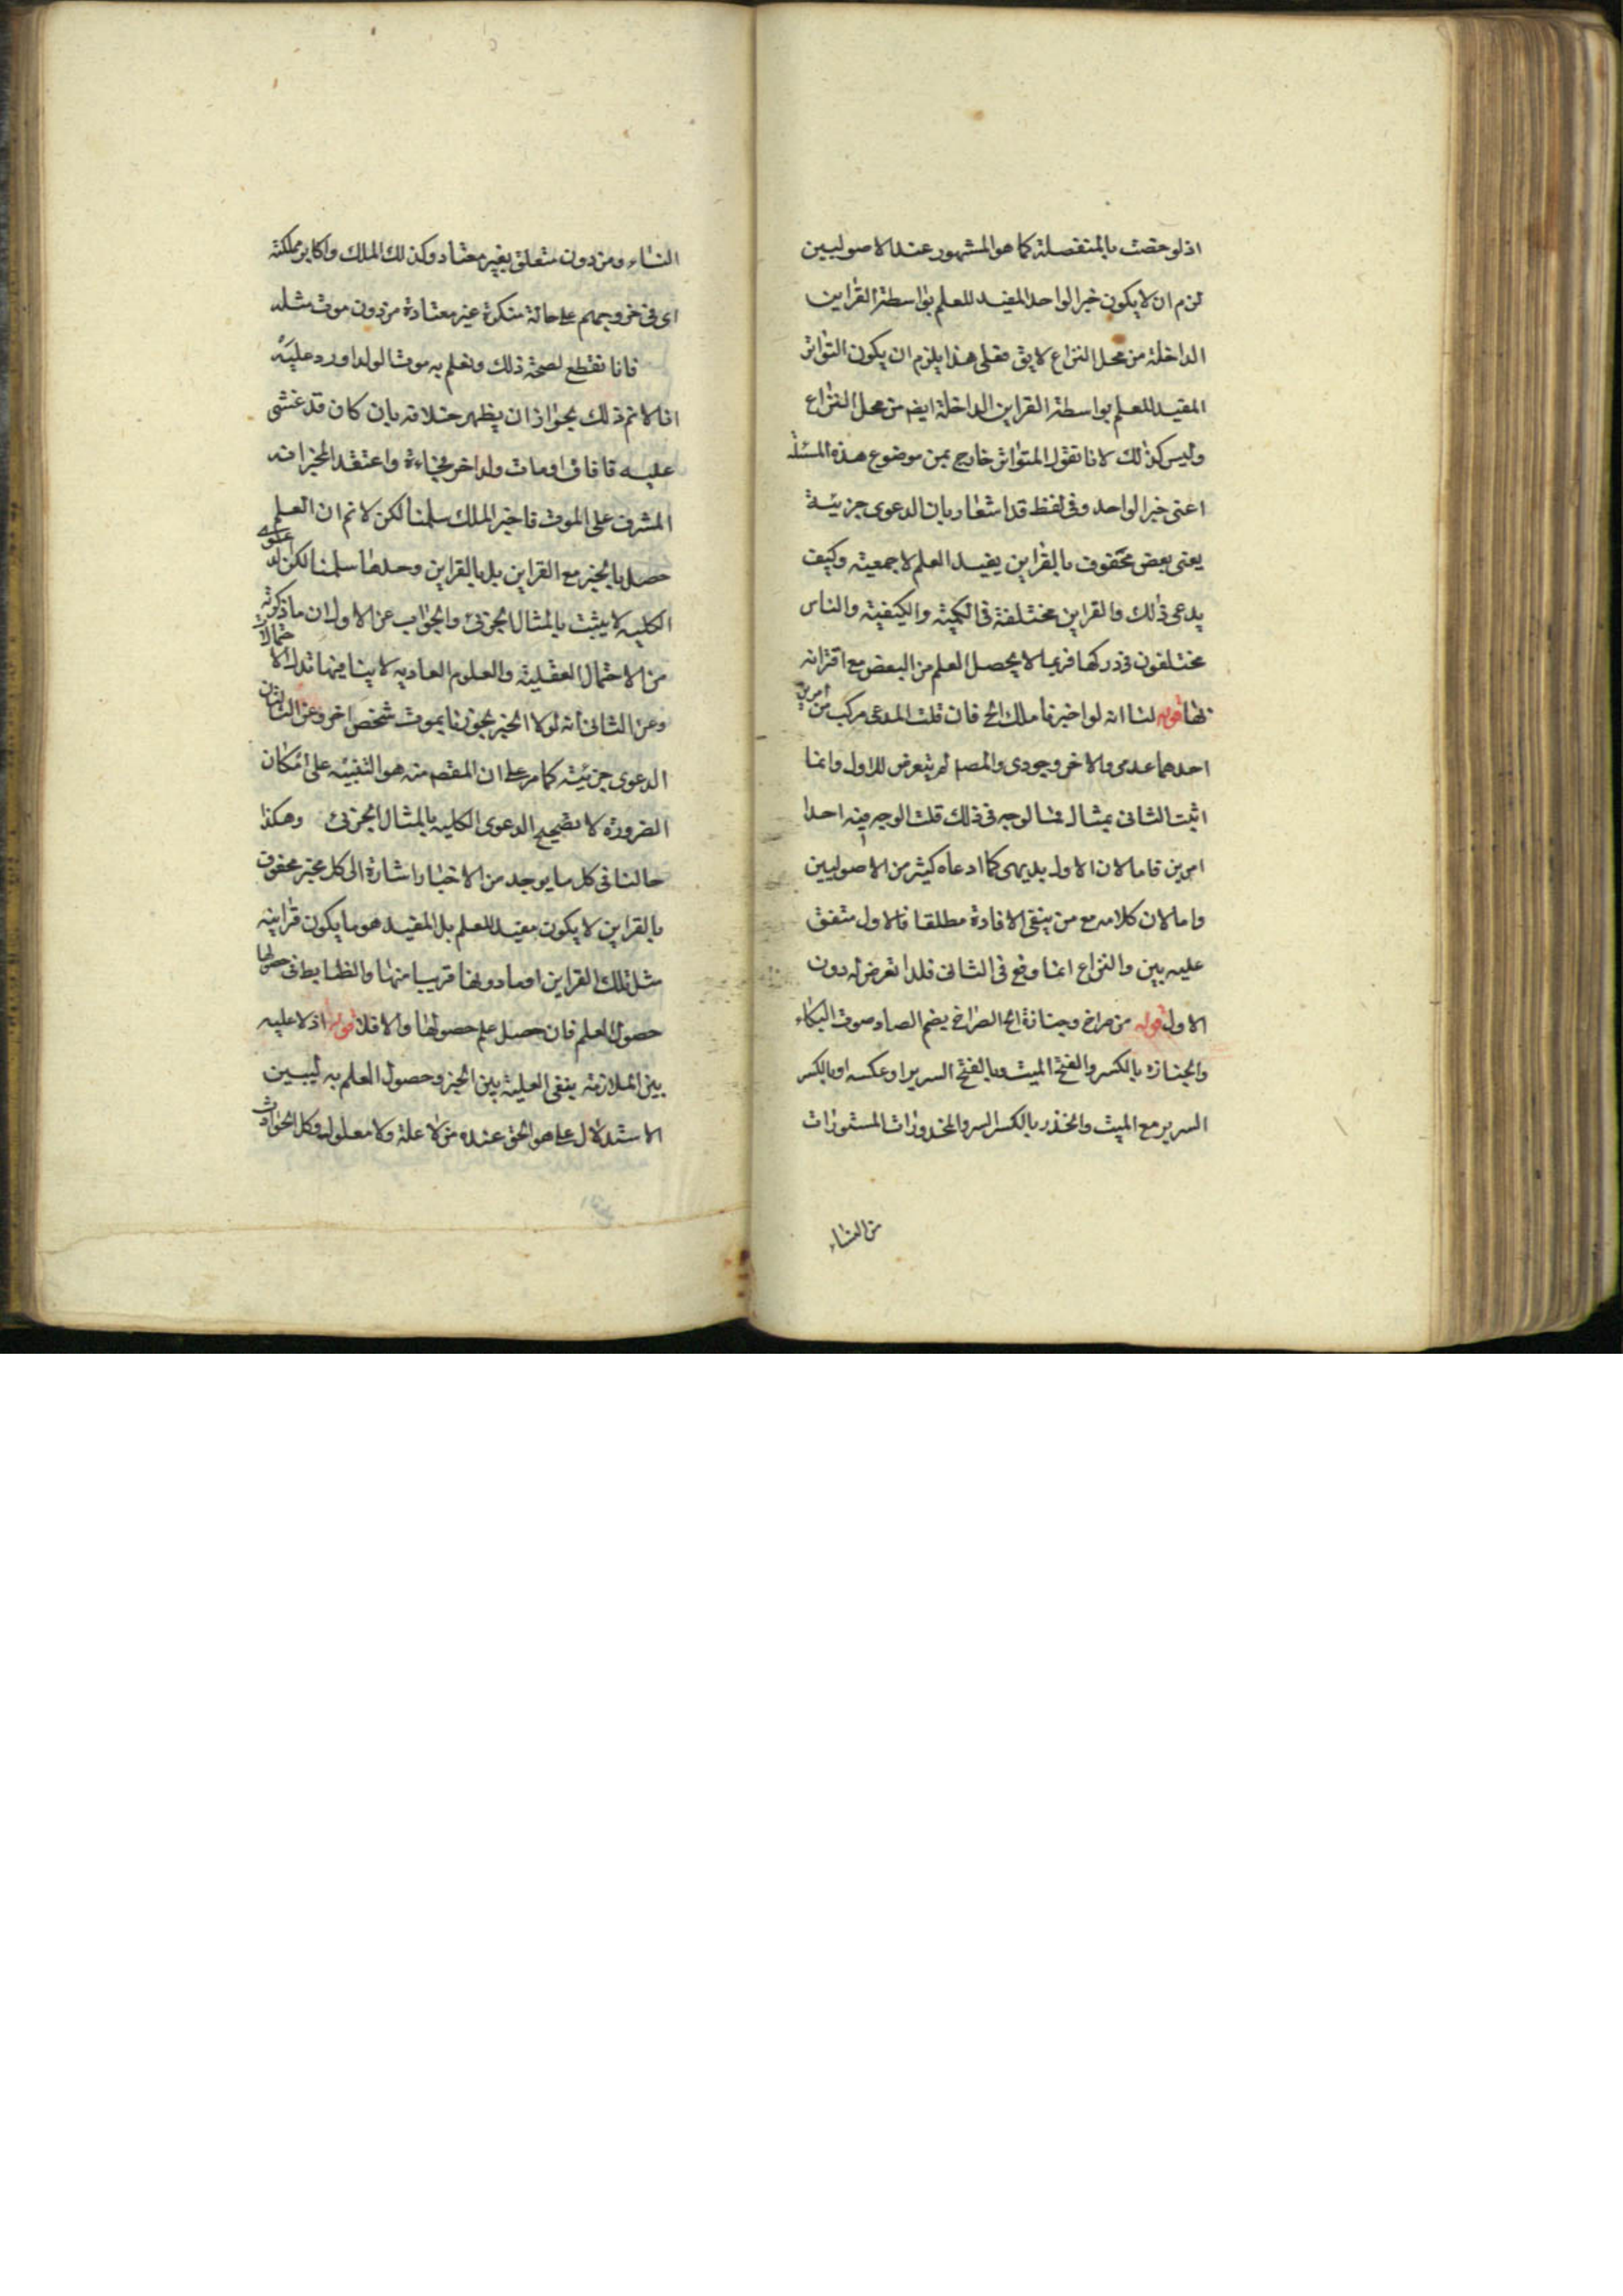 اذ لو خصت بالمنفصلة كما هو المشهور عند الاصوليين
لزم ان لا يكون خبر الواحد المفيد للعلم بواسطة القراين
الداخلة من محل النزاع لا يق فعلى هذا يلزم ان يكون التواتر
المفيد للعلم بواسطة القراين الداخلة ايضم من محل النزاع
وليس كذلك لانا نقول المتواتر خارج عن موضوع هذه المسئلة
اعنى خبر الواحد وفى لفظ قد اشعار بان الدعوى جزئية
يعنى بعض محفوف بالقراين يفيد العلم لا جمعيته وكيف
يدعى ذلك والقراين مختلفة فى الكمية والكيفية والناس
مختلفون فى دركها فربما لا يحصل العلم من البعض مع اقترانه
بها قوله لنا انه لو اخبرنا ملك الخ فان قلت المدعى مركب من امرين
احدهما عدمى والاخر وجودى والمصم لم يتعرض للاول وانما
اثبت الثانى بمثال فما الوجه فى ذلك قلت الوجه فيه احد
امرين فاما لان الاول بديهى كما ادعاه كثير من الاصوليين
واما لان كلامه مع من ينفى الافادة مطلقا فالاول متفق
عليه بين والنزاع انما وقع فى الثانى فلذا تعرض له دون
الاول قوله من صراخ وجنازة الخ الصراخ بضم الصاد صوت البكاء
والجنازه بالكسر والفتح الميت وبالفتح السرير او عكسه او بالكسر
السرير مع الميت والخدر بالكسر الستر والمخدورات المستورات
من النساء
النساء ومن دون متعلق بغير معتاد وكذلك الملك واكابر مملكته
اى فى خروجهم على حالة منكرة غير معتادة من دون موت مثله
فانا نقطع لصحة ذلك ونعلم به موت الولد اورد عليه
انا لا نم ذلك بجواز ان يظهر خلافه بان كان قد غشى
عليه فافاق او مات ولد اخر فجاءة واعتقد المخبر انه
المشرف على الموت فاخبر الملك سلمنا لكن لا نم ان العلم
حصل بالخبر مع القراين بل بالقراين وحدها سلمنا لكن الدعوى
الكليه لا يثبت بالمثال الجزئى والجواب عن الاول ان ما ذكرته
من الاحتمال العقلية والعلوم العاديه لا ينافيها تلك الاحتمالات
وعن الثانى انه لولا الخبر لجوزنا بموت شخص اخر وعن الثالث ان
الدعوى جزئية كما مر على ان المقصم منه هو التنبيه على امكان
الضرورة لا تصحيح الدعوى الكليه بالمثال الجزئى وهكذا
حالنا فى كل ما يوجد من الاخبار اشارة الى كل مخبر محفوف
بالقراين لا يكون مفيد للعلم بل المفيد هو ما يكون قراينه
مثل تلك القراين او ما دونها قريبا منها والضابط فى حصولها
حصول العلم فان حصل علم حصولها والا فلا قوله اذ لا عليه
بين الملازمة ينفى العلية بين الخبر وحصول العلم به ليبين
الاستدلال على هو الحق عنده من لا علة ولا معلول وكل الحوادث